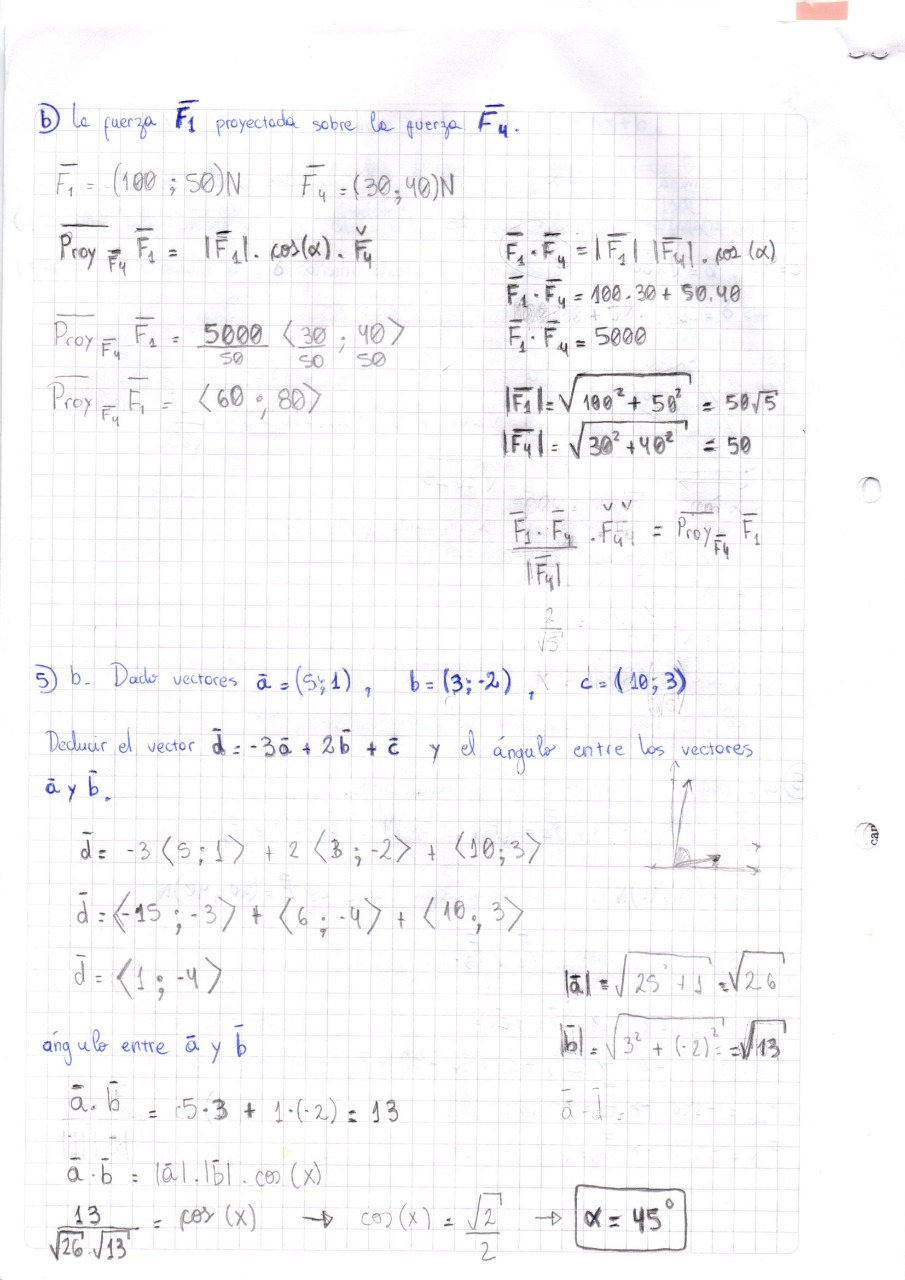 b) La fuerza F̅1 proyectada sobre la fuerza F̅4.
F̅1 = (100 ; 50)N F̅4 = (30; 40)N
Proy F̅4 F̅1 = |F̅1| . cos(α) . F̌4
F̅1 · F̅4 = |F̅1| |F̅4| . cos (α)
F̅1 · F̅4 = 100.30 + 50.40
F̅1 · F̅4 = 5000
Proy F̅4 F̅1 = 5000/50 ⟨30/50 ; 40/50⟩
Proy F̅4 F̅1 = ⟨60 ; 80⟩
|F̅1| = √(100² + 50²) = 50√5
|F̅4| = √(30² + 40²) = 50
F̅1 · F̅4 / |F̅4| . F̌4 = Proy F̅4 F̅1
2/√5
5) b- Dado vectores a̅ = (5;1) , b = (3;-2) , c = (10; 3)
Deducir el vector d̅ = -3a̅ + 2b̅ + c̅ y el ángulo entre los vectores
a̅ y b̅.
d̅ = -3 ⟨5 ; 1⟩ + 2 ⟨3 ; -2⟩ + ⟨10; 3⟩
d̅ = ⟨-15 ; -3⟩ + ⟨6 ; -4⟩ + ⟨10 ; 3⟩
d̅ = ⟨1 ; -4⟩
|a̅| = √(25 + 1) = √26
|b̅| = √(3² + (-2)²) = √13
ángulo entre a̅ y b̅
a̅ · b̅ = 5·3 + 1·(-2) = 13
a̅ · d̅ =
a̅ · b̅ = |a̅| . |b̅| . cos (x)
13/(√26 · √13) = cos (x) → cos(x) = √2/2 → α = 45°